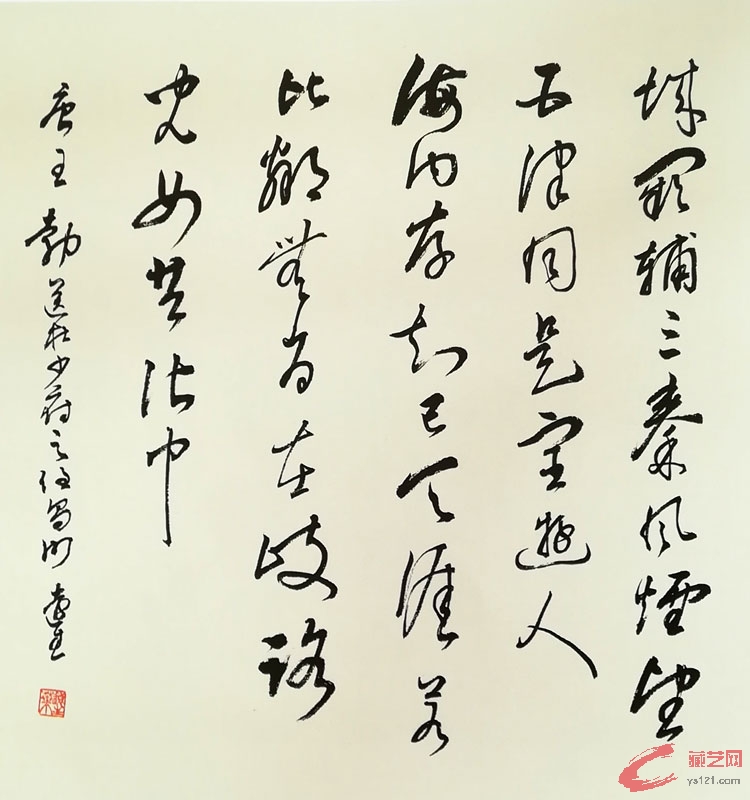 城闕輔三秦風煙望
五津同是宦遊人
海内存知己天涯若
比鄰無為在歧路
兒女共沾巾
唐王勃送杜少府之任蜀州
藏艺网
ys121.com